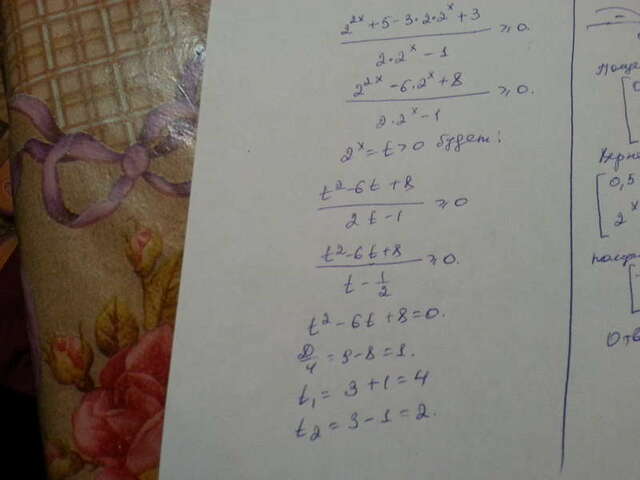 2^{2x} + 5 - 3·2·2^x + 3
2·2^x - 1
≥ 0.
2^{2x} - 6·2^x + 8
2·2^x - 1
≥ 0.
2^x = t > 0 будет:
t² - 6t + 8
2t - 1
≥ 0
t² - 6t + 8
t - 1/2
≥ 0.
t² - 6t + 8 = 0.
D/4 = 9 - 8 = 1.
t₁ = 3 + 1 = 4
t₂ = 3 - 1 = 2.
0,5
2^x
Отв